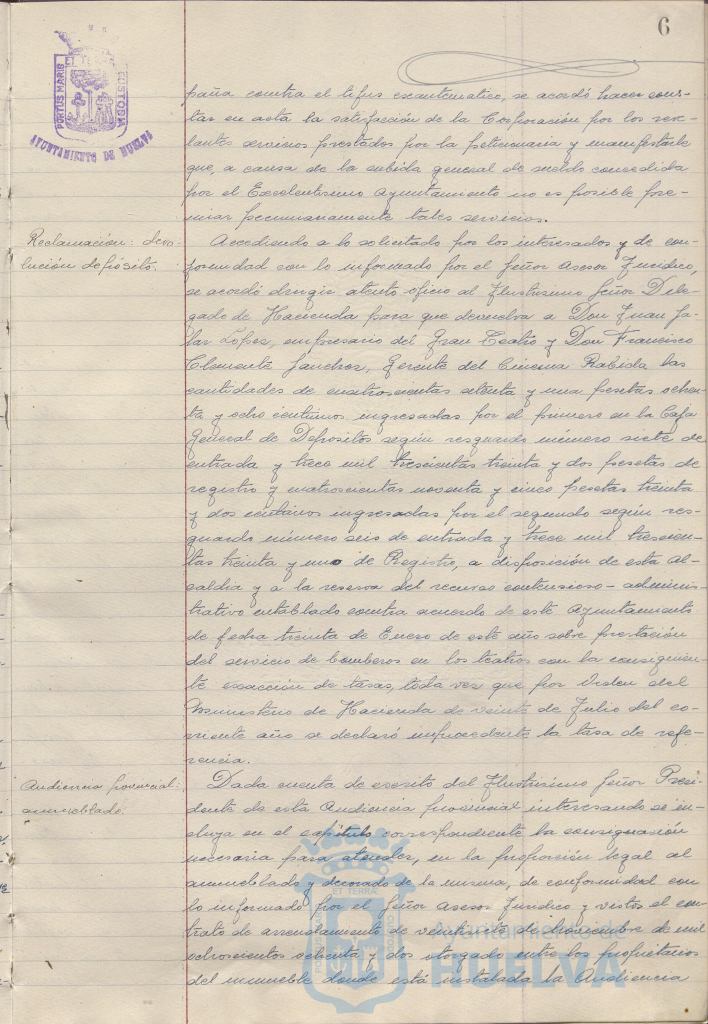 6
PORTUS MARIS ET TERRÆ CUSTODIA
AYUNTAMIENTO DE HUELVA
paña contra el tifus exantematico, se acordó hacer cons-
tar en acta la satisfacción de la Corporación por los rele-
vantes servicios prestados por la peticionaria y manifestarle
que, a causa de la subida general de sueldo concedida
por el Excelentisimo Ayuntamiento no es posible pre-
miar pecuniariamente tales servicios.
Reclamación: devo-
lución depósito.
Accediendo a lo solicitado por los interesados y de con-
formidad con lo informado por el Señor Asesor Juridico,
se acordó dirigir atento oficio al Ilustrisimo Señor Dele-
gado de Hacienda para que devuelva a Don Juan
López, empresario del Gran Teatro y Don Francisco
Clemente Sanchez, Gerente del Cinema Rabida las
cantidades de cuatrocientas setenta y una pesetas ochen-
ta y ocho centimos ingresadas por el primero en la Caja
General de Depositos según resguardo número siete de
entrada y trece mil trescientas treinta y dos pesetas de
registro y cuatrocientas noventa y cinco pesetas treinta
y dos centimos ingresadas por el segundo según res-
guardo número seis de entrada y trece mil trescien-
tas treinta y uno de Registro, a disposición de esta Al-
caldia y a la reserva del recurso contencioso-adminis-
trativo entablado contra acuerdo de este Ayuntamiento
de fecha treinta de Enero de este año sobre prestación
del servicio de bomberos en los teatros con la consiguien-
te exacción de tasas, toda vez que por Orden del
Ministerio de Hacienda de veinte de Julio del co-
rriente año se declaró improcedente la tasa de refe-
rencia.
Audiencia provincial:
amueblado.
Dada cuenta de escrito del Ilustrisimo Señor Presi-
dente de esta Audiencia provincial interesando se in-
cluya en el capitulo correspondiente la consignación
necesaria para atender, en la proporción legal al
amueblado y decorado de la misma, de conformidad con
lo informado por el Señor Asesor Juridico y vistos el con-
trato de arrendamiento de veintisiete de Noviembre de mil
ochocientos ochenta y dos otorgado entre los propietarios
del inmueble donde está instalada la Audiencia
Ayuntamiento de
HUELVA